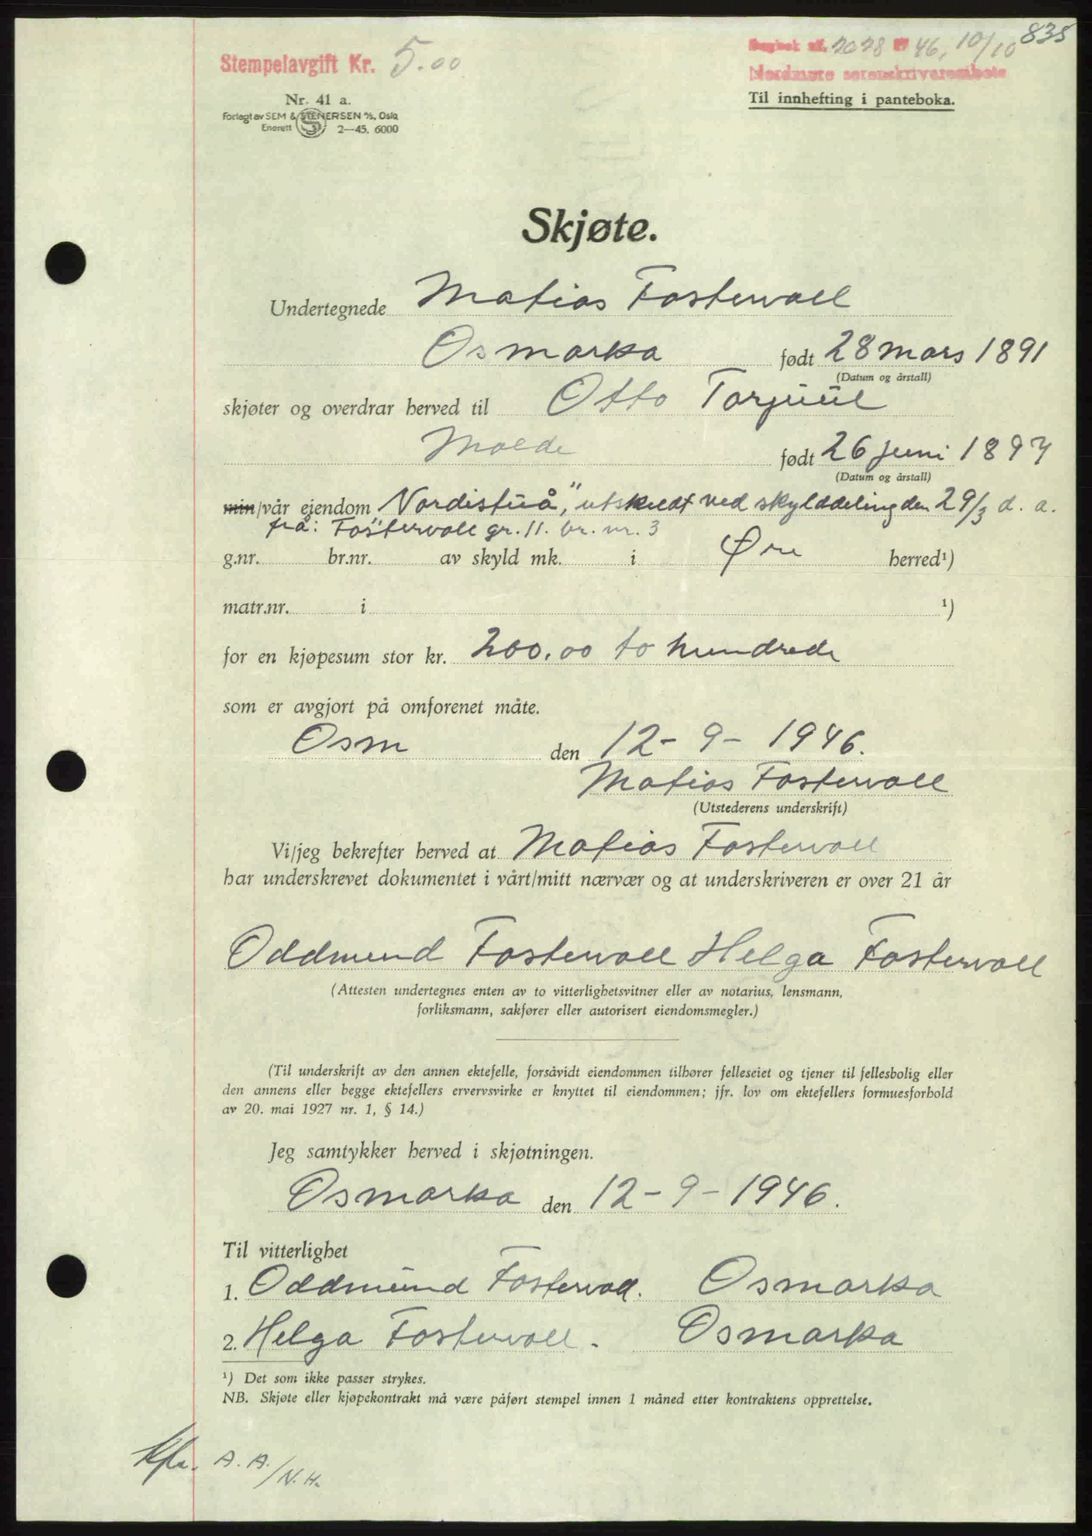 835
Stempelavgift Kr. 5.00
Dagbok nr. 2028 46, 10/10
Nordmøre sorenskriverembete
Nr. 41 a.
Til innhefting i panteboka.
Forlagt av SEM & STENERSEN A/S, Oslo
Enerett 2—45. 6000
Skjøte.
Undertegnede Matias Fostervoll
Osmarka født 28 mars 1891
(Datum og årstall)
skjøter og overdrar herved til Otto Torjuul
Molde født 26 juni 1897
(Datum og årstall)
min/vår eiendom "Nordistuå", utskildt ved skylddeling den 29/3 d. a.
fra: Fostervoll gr. 11. br. nr. 3
g.nr. br.nr. av skyld mk. i Øre herred¹)
matr.nr. i ¹)
for en kjøpesum stor kr. 200.00 to hundrede
som er avgjort på omforenet måte.
Osm den 12-9-1946.
Matias Fostervoll
(Utstederens underskrift)
Vi/jeg bekrefter herved at Matias Fostervoll
har underskrevet dokumentet i vårt/mitt nærvær og at underskriveren er over 21 år
Oddmund Fostervoll Helga Fostervoll
(Attesten undertegnes enten av to vitterlighetsvitner eller av notarius, lensmann,
forliksmann, sakfører eller autorisert eiendomsmegler.)
(Til underskrift av den annen ektefelle, forsåvidt eiendommen tilhører felleseiet og tjener til fellesbolig eller
den annens eller begge ektefellers ervervsvirke er knyttet til eiendommen; jfr. lov om ektefellers formuesforhold
av 20. mai 1927 nr. 1, § 14.)
Jeg samtykker herved i skjøtningen.
Osmarka den 12-9-1946.
Til vitterlighet
1. Oddmund Fostervoll. Osmarka
2. Helga Fostervoll. Osmarka
¹) Det som ikke passer strykes.
NB. Skjøte eller kjøpekontrakt må være påført stempel innen 1 måned etter kontraktens opprettelse.
A. A./N. H.